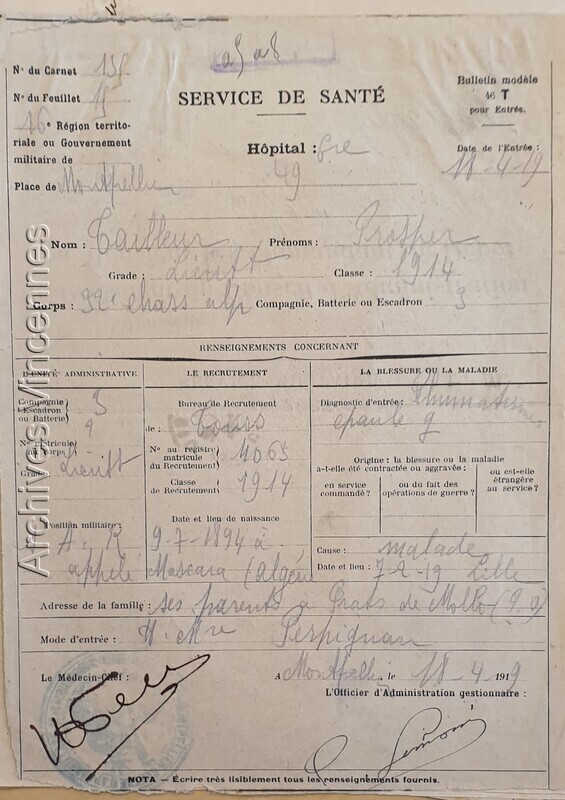 a5 a8
N° du Carnet 135
N° du Feuillet 19
SERVICE DE SANTÉ
Bulletin modèle
46 T
pour Entrés.
16e Région territo-
riale ou Gouvernement
militaire de
Hôpital : Gre
49
Date de l'Entrée :
18-4-19
Place de Montpellier
Nom : Tailleur Prénoms : Prosper
Grade : Lieutt Classe : 1914
Corps : 32e chass alp Compagnie, Batterie ou Escadron 3
RENSEIGNEMENTS CONCERNANT
L'UNITÉ ADMINISTRATIVE
LE RECRUTEMENT
LA BLESSURE OU LA MALADIE
Compagnie
Escadron
ou Batterie
3
N° matricule
au corps
Grade Lieutt
Position militaire :
A. R
appelé
Bureau de Recrutement
de : Tours
N° au registre
matricule
du Recrutement
4063
Classe
de Recrutement
1914
Date et lieu de naissance
9-7-1894 à
Mascara (algérie
Diagnostic d'entrée : Rhumatismes
epaule g
Origine : la blessure ou la maladie
a-t-elle été contractée ou aggravée :
en service
commandé ?
ou du fait des
opérations de guerre ?
ou est-elle
étrangère
au service ?
Cause : malade
Date et lieu : 7-2-19 Lille
Adresse de la famille : ses parents a Prats de Mollo (P. O)
Mode d'entrée : H. Mre Perpignan
Le Médecin-Chef :
A Montpellier le 18-4 1919
L'Officier d'Administration gestionnaire :
NOTA — Écrire très lisiblement tous les renseignements fournis.
Archives Vincennes